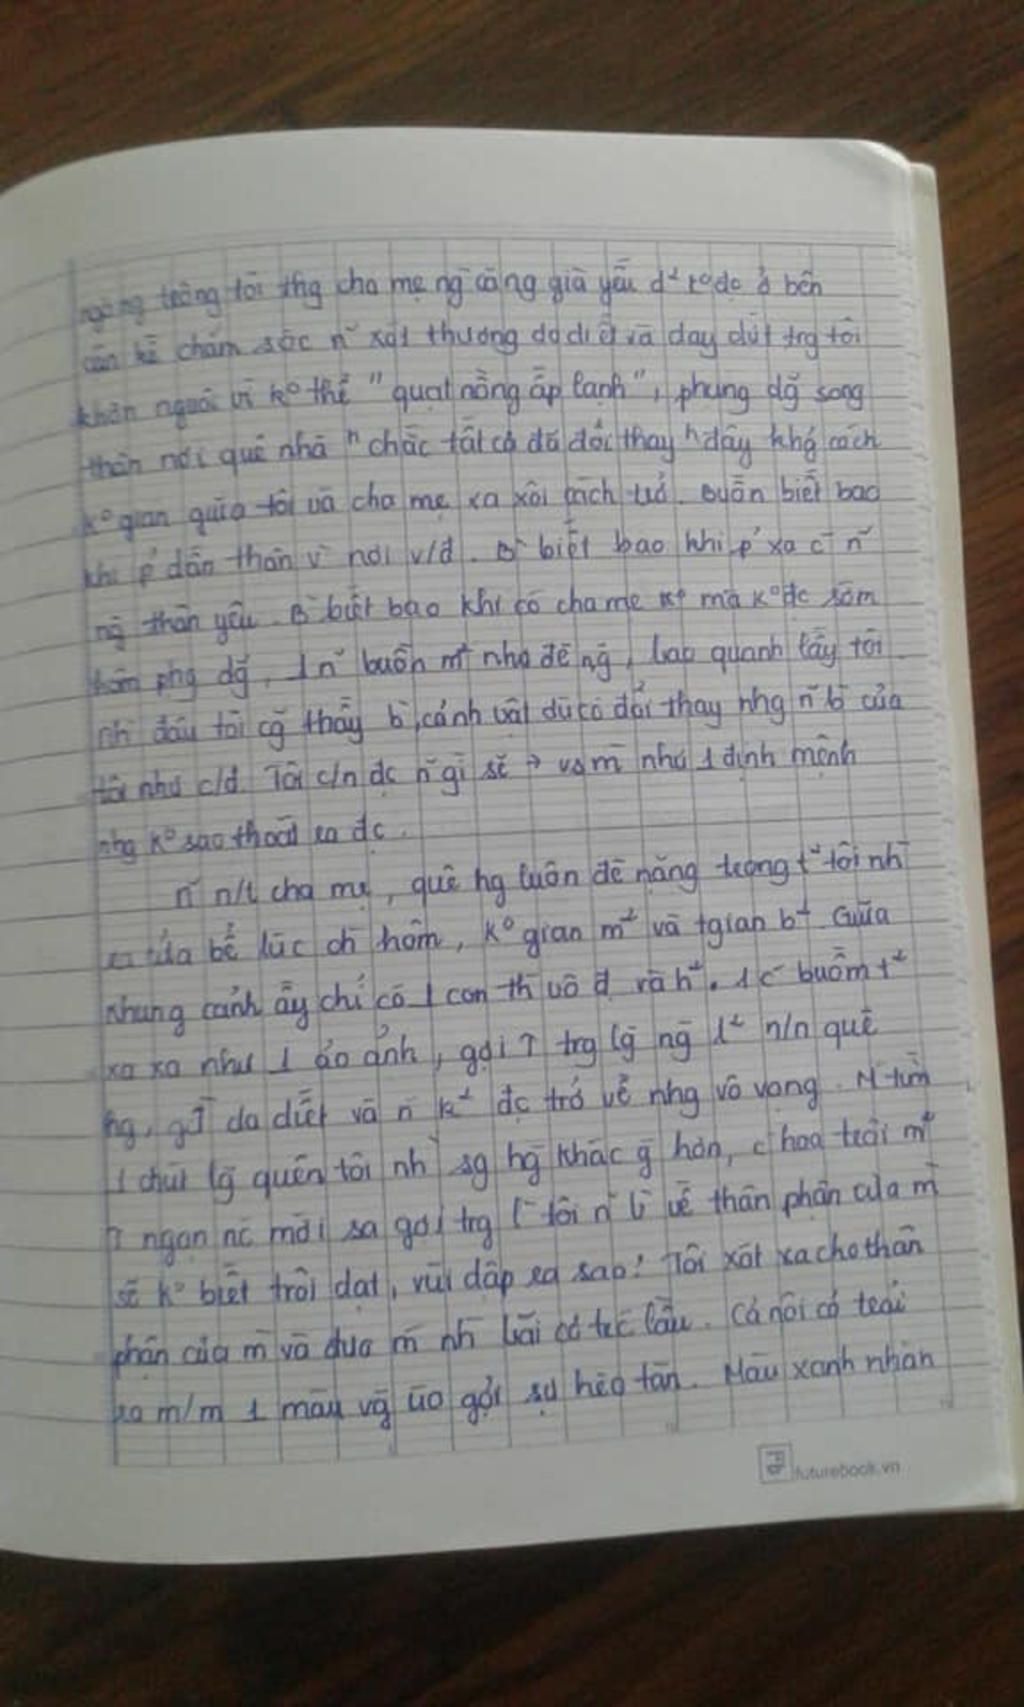 ngóng trông tôi thg cha mẹ ng càng già yếu d² k⁰ đc ở bên
cận kề chăm sóc n~ xót thương da diết và day dứt trg tôi
khôn nguôi vì k⁰ thể "quạt nồng ấp lạnh", phụng dg~ song
thân nơi quê nhà "chắc tất cả đã đổi thay" đây khg cách
k⁰ gian giữa tôi và cha mẹ xa xôi cách trở. Buồn biết bao
khi p' dấn thân v` nơi v/đ. B` biết bao khi p' xa c~ n~
ng` thân yêu. B` biết bao khi có cha mẹ mà k⁰ đc sớm
hôm phg dg~. 1 n~ buồn m² nha đề ng~, bao quanh lấy tôi
nhì đâu tôi cg~ thấy b`, cảnh vật dù có đổi thay nhg n~ b` của
tôi như c/đ. Tôi c/n đc n~ gì sẽ → vs m` như 1 định mệnh
nhg k⁰ sao thoát ra đc.
n~ n/t cha mẹ, quê hg luôn đè nặng trong t² tôi nhì
ra cửa bể lúc ch` hôm, k⁰ gian m² và tgian b². Giữa
khung cảnh ấy chỉ có 1 con th` vô đ. và h². 1 c~ buồm t²
xa xa như 1 ảo ảnh, gợi ↑ trg lg` ng` l² n/n quê
hg, gđ da diết và n~ k² đc trở về nhg vô vọng. N~ tưởng
1 chút lg~ quên tôi nh` sg hg~ khác g~ hơn, c~ hoa trôi m²
↑ ngọn nc mới sa gợi trg l~ tôi n~ l~ về thân phận của m`
sẽ k⁰ biết trôi dạt, vùi dập ra sao! Tôi xót xa cho thân
phận của m` và đưa m~ nh` bãi cỏ trc lầu. Cả nội cỏ trải
ra m/m 1 màu vg úa gợi sự héo tàn. Màu xanh nhàn
futurebook.vn